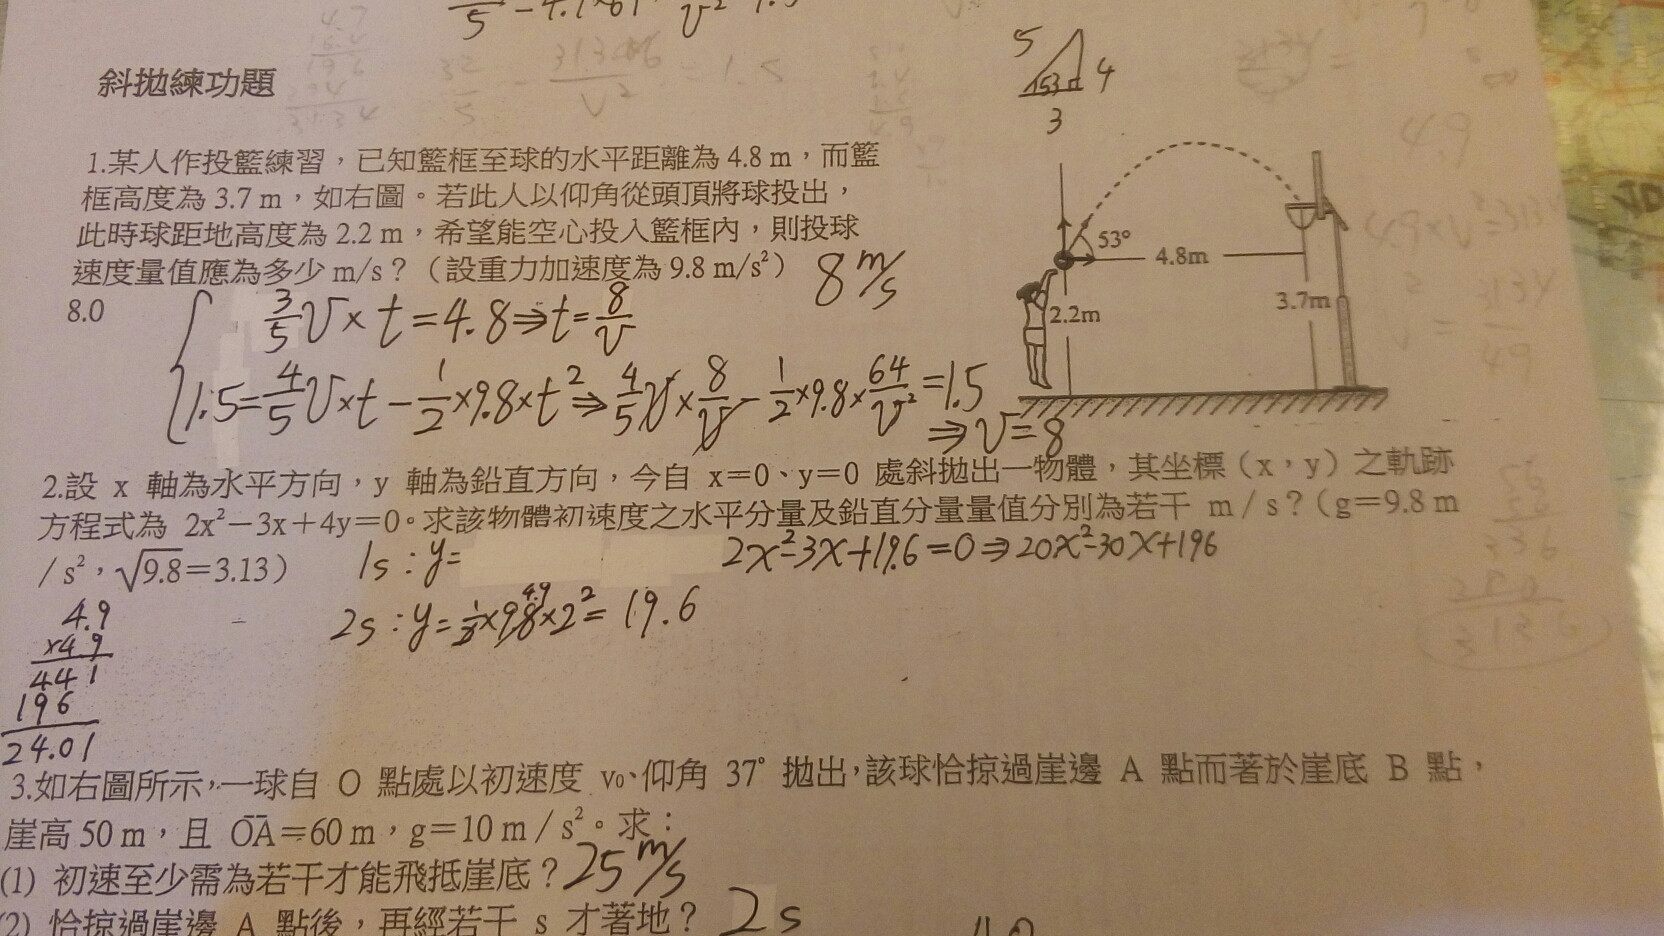 斜拋練功題
5
53
4
3
1.某人作投籃練習,已知籃框至球的水平距離為 4.8 m,而籃
框高度為 3.7 m,如右圖。若此人以仰角從頭頂將球投出,
此時球距地高度為 2.2 m,希望能空心投入籃框內,則投球
速度量值應為多少 m/s?(設重力加速度為 9.8 m/s²) 8 m/s
8.0
53°
4.8m
2.2m
3.7m
3/5 v × t = 4.8 ⇒ t = 8/v
1.5 = 4/5 v × t − 1/2 × 9.8 × t² ⇒ 4/5 v × 8/v − 1/2 × 9.8 × 64/v² = 1.5
⇒ v = 8
2.設 x 軸為水平方向,y 軸為鉛直方向,今自 x=0、y=0 處斜拋出一物體,其坐標(x,y)之軌跡
方程式為 2x²−3x+4y=0。求該物體初速度之水平分量及鉛直分量量值分別為若干 m/s?(g=9.8 m
/s²,√9.8=3.13)
1s : y=
2x²−3x+19.6=0 ⇒ 20x²−30x+196
2s : y= 1/2 × 9.8 × 2² = 19.6
4.9
4.9
×4.9
441
196
24.01
3.如右圖所示,一球自 O 點處以初速度 v₀、仰角 37° 拋出,該球恰掠過崖邊 A 點而著於崖底 B 點,
崖高 50 m,且 OA=60 m,g=10 m/s²。求:
(1) 初速至少需為若干才能飛抵崖底? 25 m/s
(2) 恰掠過崖邊 A 點後,再經若干 s 才著地? 2s